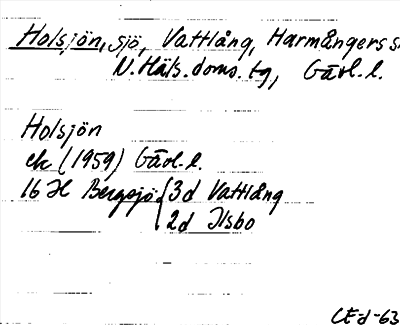 Holsjön, sjö, Vattlång, Harmångers s
N. Häls. doms. tg, Gävl. l.
Holsjön
ek (1959) Gävl. l.
16 H Bergsjö { 3d Vattlång
2d Ilsbo
CE-d -63